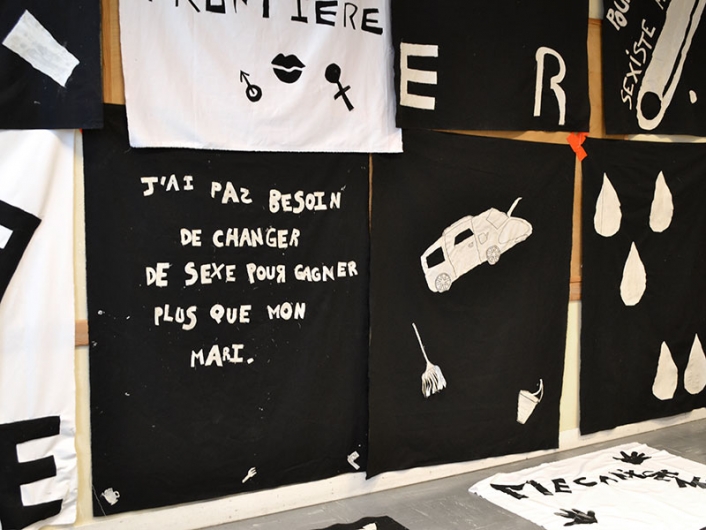 FRONTIÈRE
E R
POUR
SEXISTE
J'AI PAS BESOIN
DE CHANGER
DE SEXE POUR GAGNER
PLUS QUE MON
MARI.
E